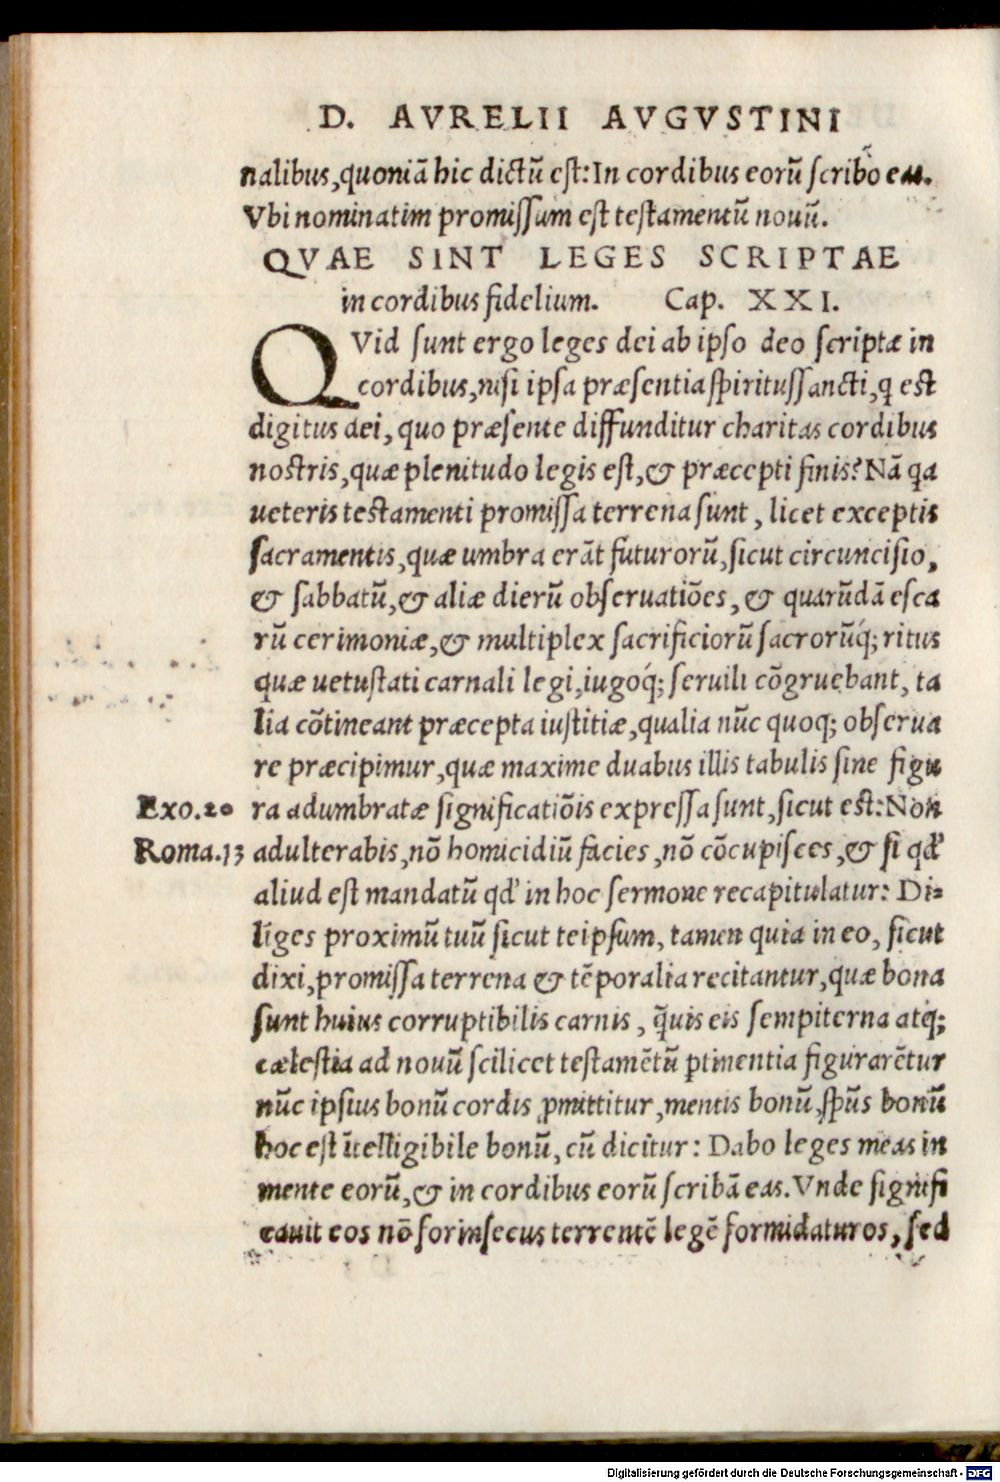 D. AVRELII AVGVSTINI
nalibus, quoniã hic dictũ est: In cordibus eorũ scribõ eas.
Vbi nominatim promissum est testamentũ nouũ.
QVAE SINT LEGES SCRIPTAE
in cordibus fidelium. Cap. XXI.
QVid sunt ergo leges dei ab ipso deo scriptæ in
cordibus, nisi ipsa præsentia spiritussancti, q̃ est
digitus dei, quo præsente diffunditur charitas cordibus
nostris, quæ plenitudo legis est, & præcepti finis? Nã qa
ueteris testamenti promissa terrena sunt, licet exceptis
sacramentis, quæ umbra erãt futurorũ, sicut circuncisio,
& sabbatũ, & aliæ dierũ obseruatiões, & quarũdã esca
rũ cerimoniæ, & multiplex sacrificiorũ sacrorũq́; ritus
quæ uetustati carnali legi, iugoq́; seruili cõgruebant, ta
lia cõtineant præcepta iustitiæ, qualia nũc quoq; obserua
re præcipimur, quæ maxime duabus illis tabulis sine figu
Exo.20 ra adumbratæ significatiõis expressa sunt, sicut est: Non
Roma.13 adulterabis, nõ homicidiũ facies, nõ cõcupisces, & si qd'
aliud est mandatũ qd' in hoc sermone recapitulatur: Di⸗
liges proximũ tuũ sicut teipsum, tamen quia in eo, sicut
dixi, promissa terrena & tẽporalia recitantur, quæ bona
sunt huius corruptibilis carnis, q̃uis eis sempiterna atq́;
cælestia ad nouũ scilicet testamẽtũ ꝑtinentia figurarẽtur
nũc ipsius bonũ cordis ꝓmittitur, mentis bonũ, sp̃us bonũ
hoc est ĩtelligibile bonũ, cũ dicitur: Dabo leges meas in
mente eorũ, & in cordibus eorũ scribã eas. Vnde signifi
cauit eos nõ forinsecus terrentẽ legẽ formidaturos, sed
Digitalisierung gefördert durch die Deutsche Forschungsgemeinschaft - DFG